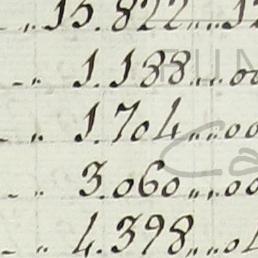 15.822....12
1.188....00
1.704....00
3.060....00
4.398....01